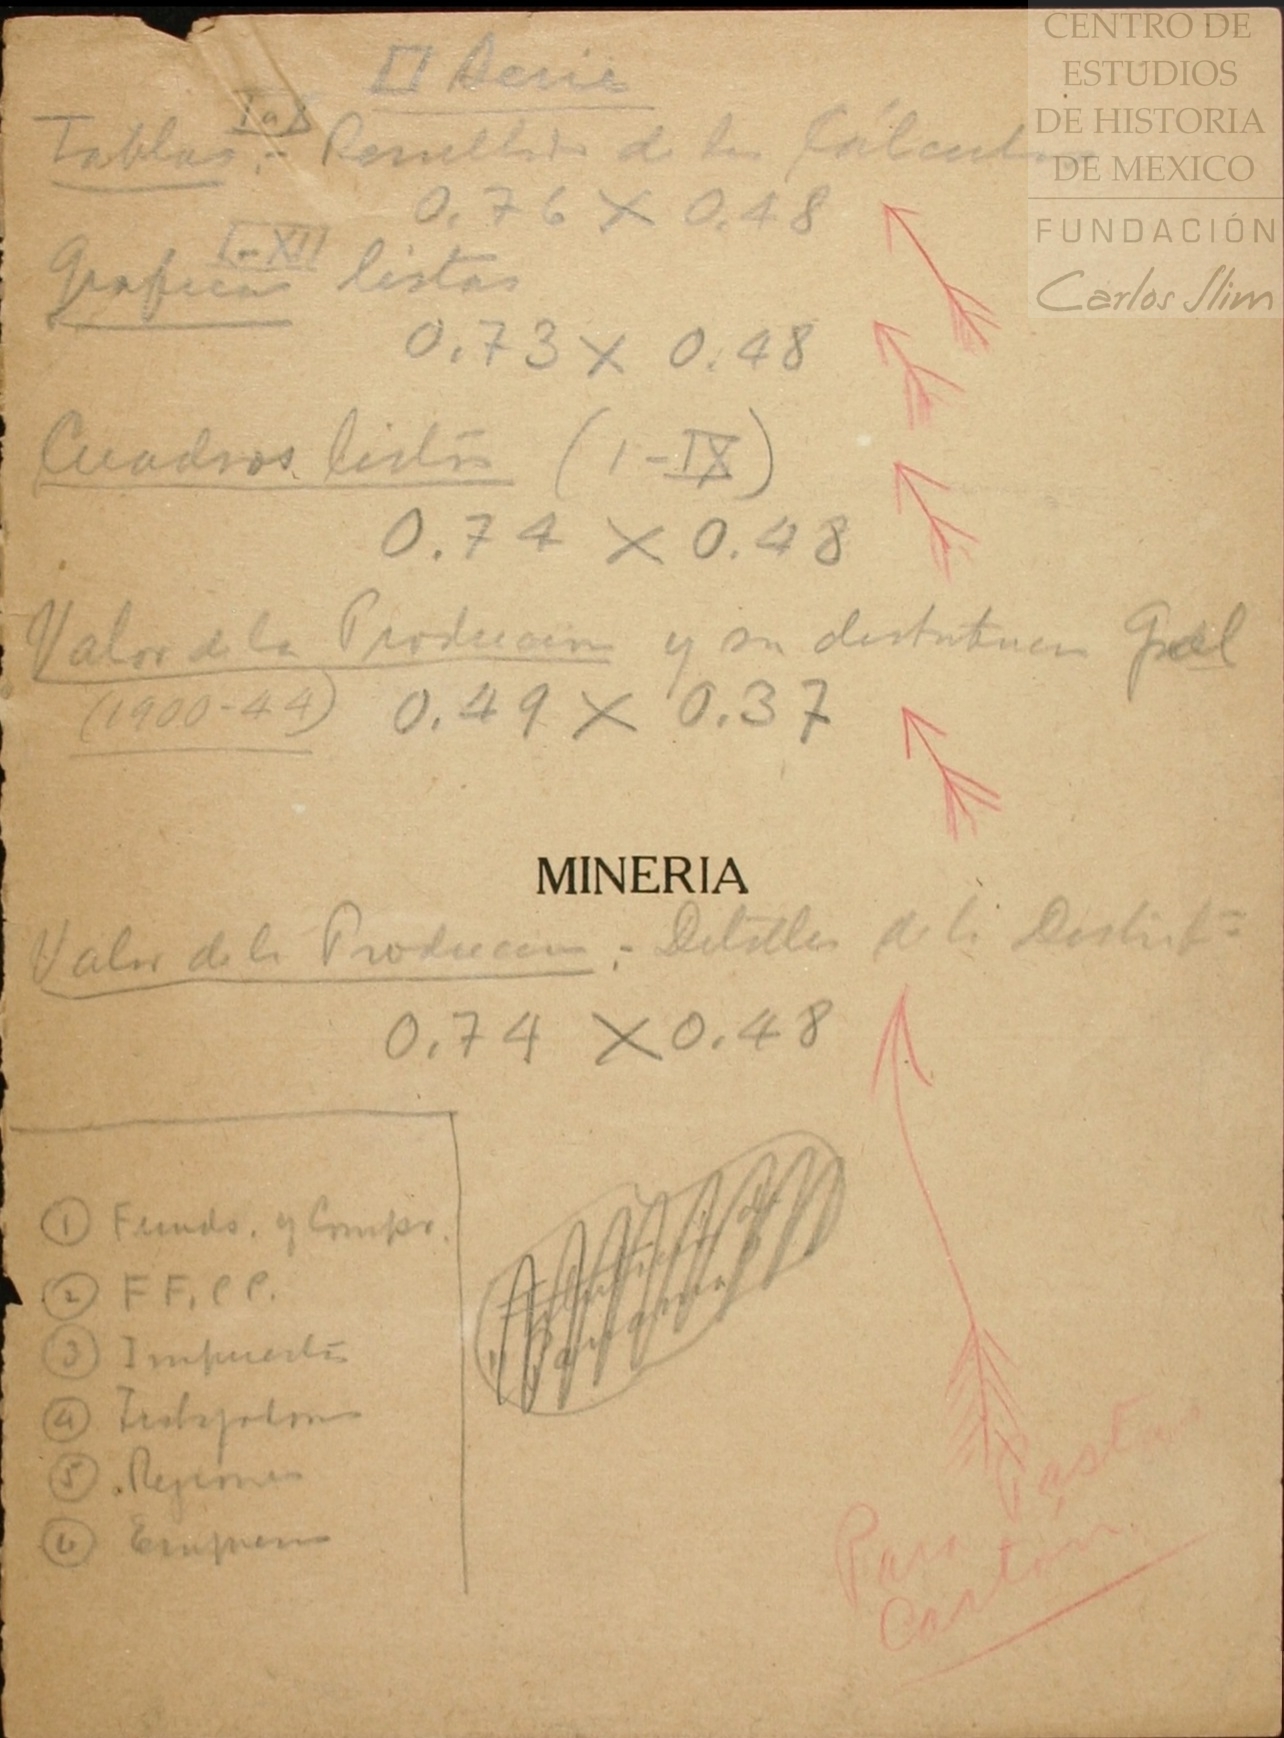 CENTRO DE
ESTUDIOS
DE HISTORIA
DE MEXICO
FUNDACIÓN
Carlos Slim
II Serie
Tablas I a X :- Resultados de los Cálculos
0.76 X 0.48
Graficas I-XII listas
0.73 X 0.48
Cuadros listos (1-IX)
0.74 X 0.48
Valor de la Produccion y su distribucion Gral
(1900-44) 0.49 X 0.37
MINERIA
Valor de la Produccion :- Detalles de la Distrib
0.74 X 0.48
1 Funds. y Compr.
2 F F. C C.
3 Impuestos
4 Trabajadores
5 Regiones
6 Empresas
Para Pastas
Cartón.